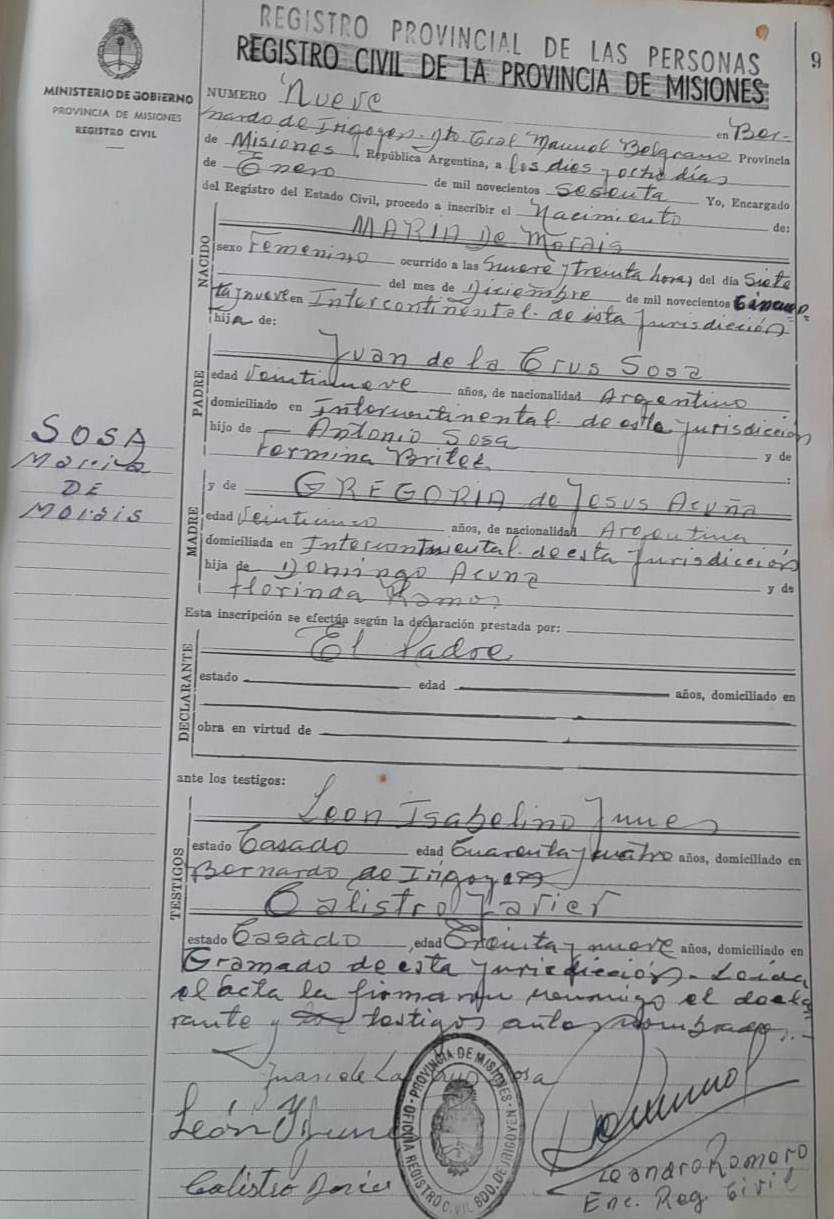 REGISTRO PROVINCIAL DE LAS PERSONAS
REGISTRO CIVIL DE LA PROVINCIA DE MISIONES
9
MINISTERIO DE GOBIERNO
PROVINCIA DE MISIONES
REGISTRO CIVIL
NUMERO Nueve en Ber-
nardo de Irigoyen - Gral Manuel Belgrano Provincia
de Misiones, República Argentina, a los dies y ocho días
de Enero de mil novecientos sesenta Yo, Encargado
del Registro del Estado Civil, procedo a inscribir el Nacimiento de:
NACIDO
MARIA De Morais
sexo Femenino ocurrido a las nueve y treinta horas del día Siete
del mes de Diciembre de mil novecientos Cincuen
ta y nueve en Intercontinental - de esta jurisdicción
hija de:
PADRE
Juan de la Crus Sosa
edad Veintinueve años, de nacionalidad Argentino
domiciliado en Intercontinental - de esta jurisdicción
hijo de Antonio Sosa y de
Fermina Britez :
SOSA
Maria
DE
Morais
MADRE
y de GREGORIA de Jesus Acuña
edad Veinticinco años, de nacionalidad Argentina
domiciliada en Intercontinental - de esta jurisdicción
hija de Domingo Acuna y de
Florinda Ramos
Esta inscripción se efectúa según la declaración prestada por:
DECLARANTE
El Padre
estado edad años, domiciliado en
obra en virtud de
ante los testigos:
TESTIGOS
Leon Isabelino
estado Casado edad Cuarenta y cuatro años, domiciliado en
Bernardo de Irigoyen
Calistro Javier
estado Casado, edad Treinta y nueve años, domiciliado en
Gramado de esta jurisdicción - Leida
el acta la firman conmigo el decla
rante y testigos antes nombrados.-
Juan de La Crus Sosa
León
Calistro
OFICINA REGISTRO CIVIL BDO. DE IRIGOYEN - PROVINCIA DE MISIONES
Leandro Romero
Enc. Reg. Civil